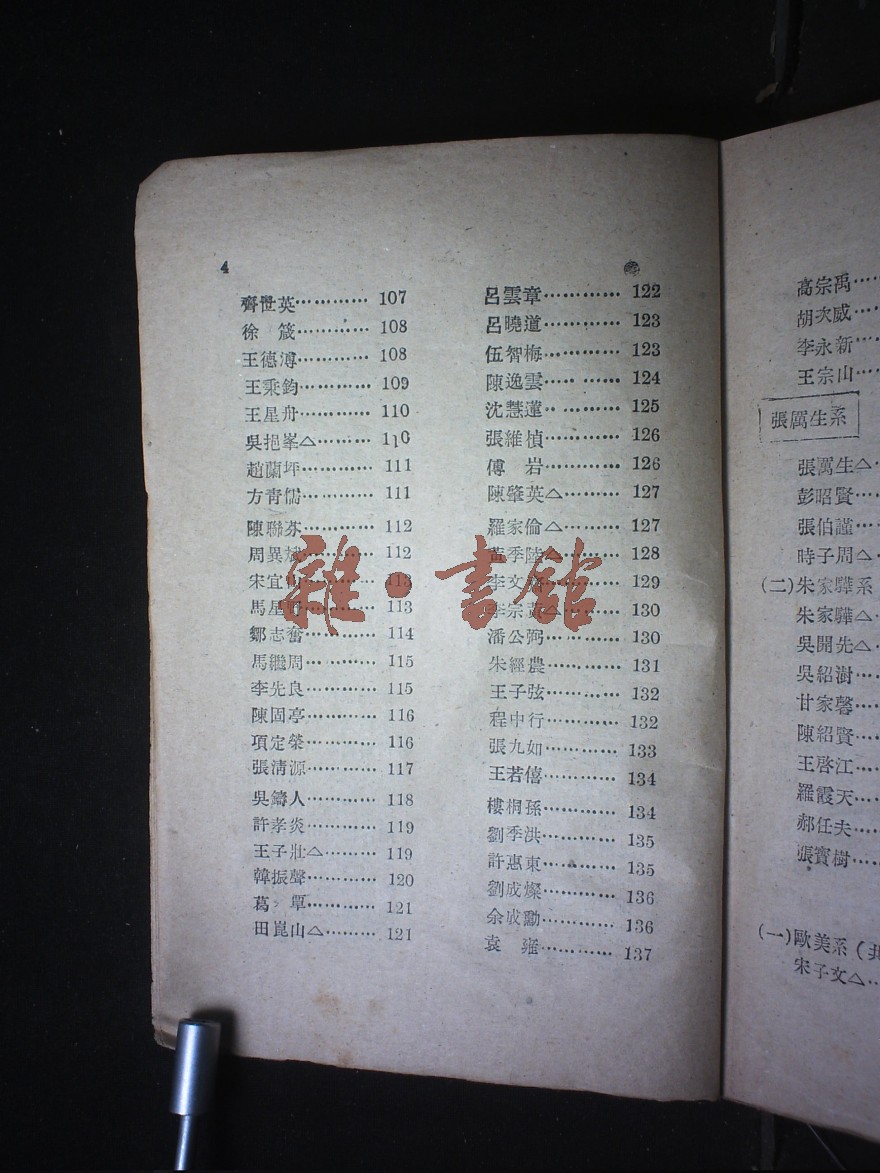 4
齊世英………… 107
徐　箴………… 108
王德溥………… 108
王秉鈞………… 109
王星舟………… 110
吳挹峯△……… 110
趙蘭坪………… 111
方青儒………… 111
陳聯芬………… 112
周異斌………… 112
宋宜山………… 113
馬星野………… 113
鄒志奮………… 114
馬繼周………… 115
李先良………… 115
陳固亭………… 116
項定榮………… 116
張清源………… 117
吳鑄人………… 118
許孝炎………… 119
王子壯△……… 119
韓振聲………… 120
葛　覃………… 121
田崑山△……… 121
呂雲章………… 122
呂曉道………… 123
伍智梅………… 123
陳逸雲………… 124
沈慧蓮………… 125
張維楨………… 126
傅　岩………… 126
陳肇英△……… 127
羅家倫△……… 127
黃季陸△……… 128
李文齋………… 129
李宗黃△……… 130
潘公弼………… 130
朱經農………… 131
王子弦………… 132
程中行………… 132
張九如………… 133
王若僖………… 134
樓桐孫………… 134
劉季洪………… 135
許惠東………… 135
劉成燦………… 136
余成勳………… 136
袁　雍………… 137
高宗禹……
胡次威……
李永新……
王宗山……
張厲生系
張厲生△…
彭昭賢……
張伯謹……
時子周△…
(二)朱家驊系
朱家驊△…
吳開先△…
吳紹澍……
甘家馨……
陳紹賢……
王啓江……
羅霞天……
郝任夫……
張寶樹……
(一)歐美系(共
宋子文△…
雜·書館